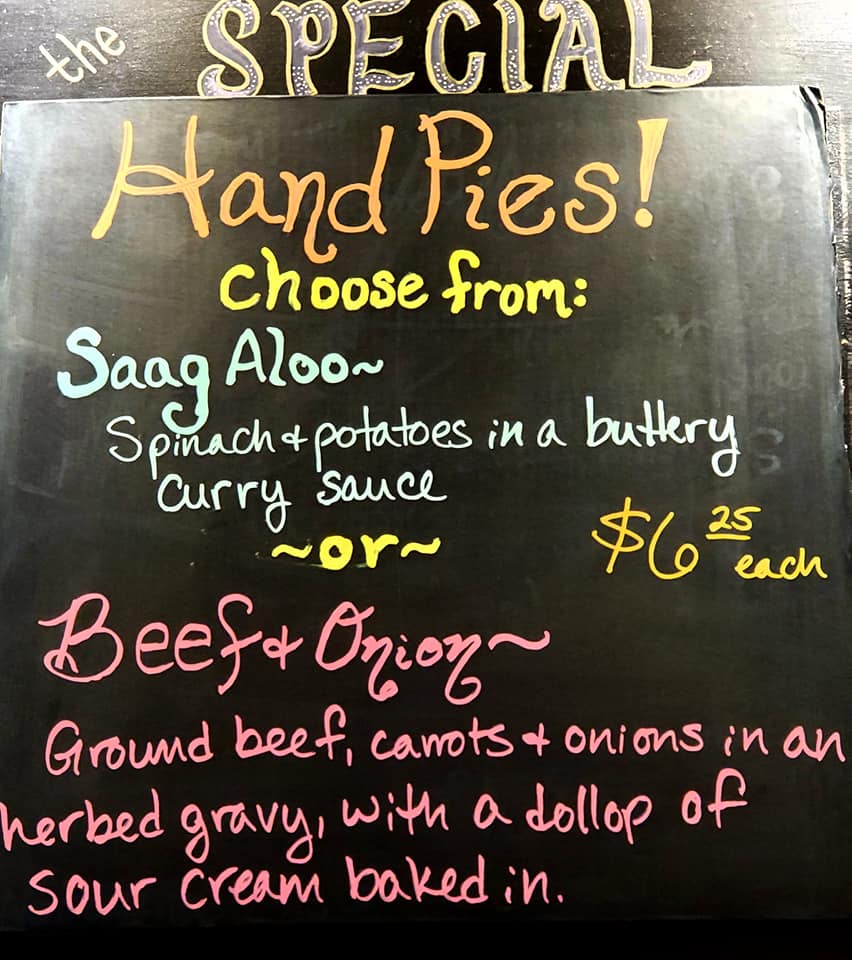 the SPECIAL
Hand Pies!
choose from:
Saag Aloo~
Spinach & potatoes in a buttery
curry sauce
~or~
$6 25 each
Beef & Onion~
Ground beef, carrots & onions in an
herbed gravy, with a dollop of
sour cream baked in.